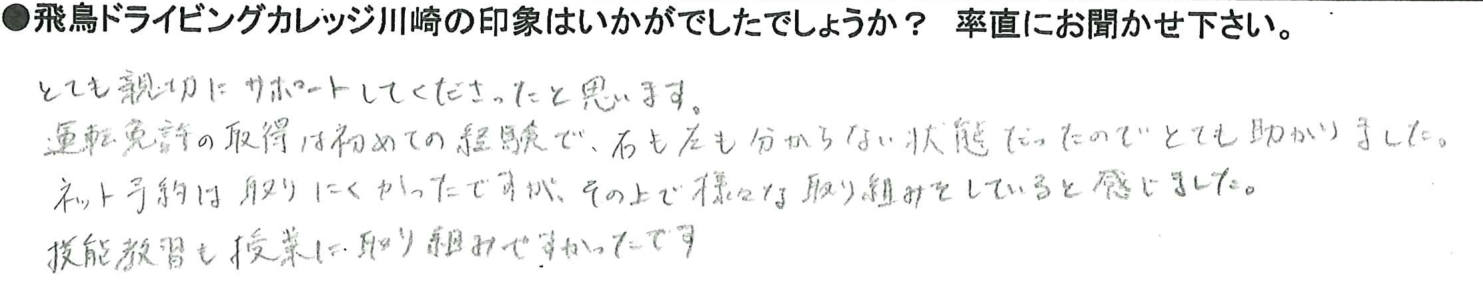 ●飛鳥ドライビングカレッジ川崎の印象はいかがでしたでしょうか？　率直にお聞かせ下さい。
とても親切にサポートしてくださったと思います。
運転免許の取得は初めての経験で、右も左も分からない状態だったのでとても助かりました。
ネット予約は取りにくかったですが、その上で様々な取り組みをしていると感じました。
技能教習も授業に取り組みやすかったです